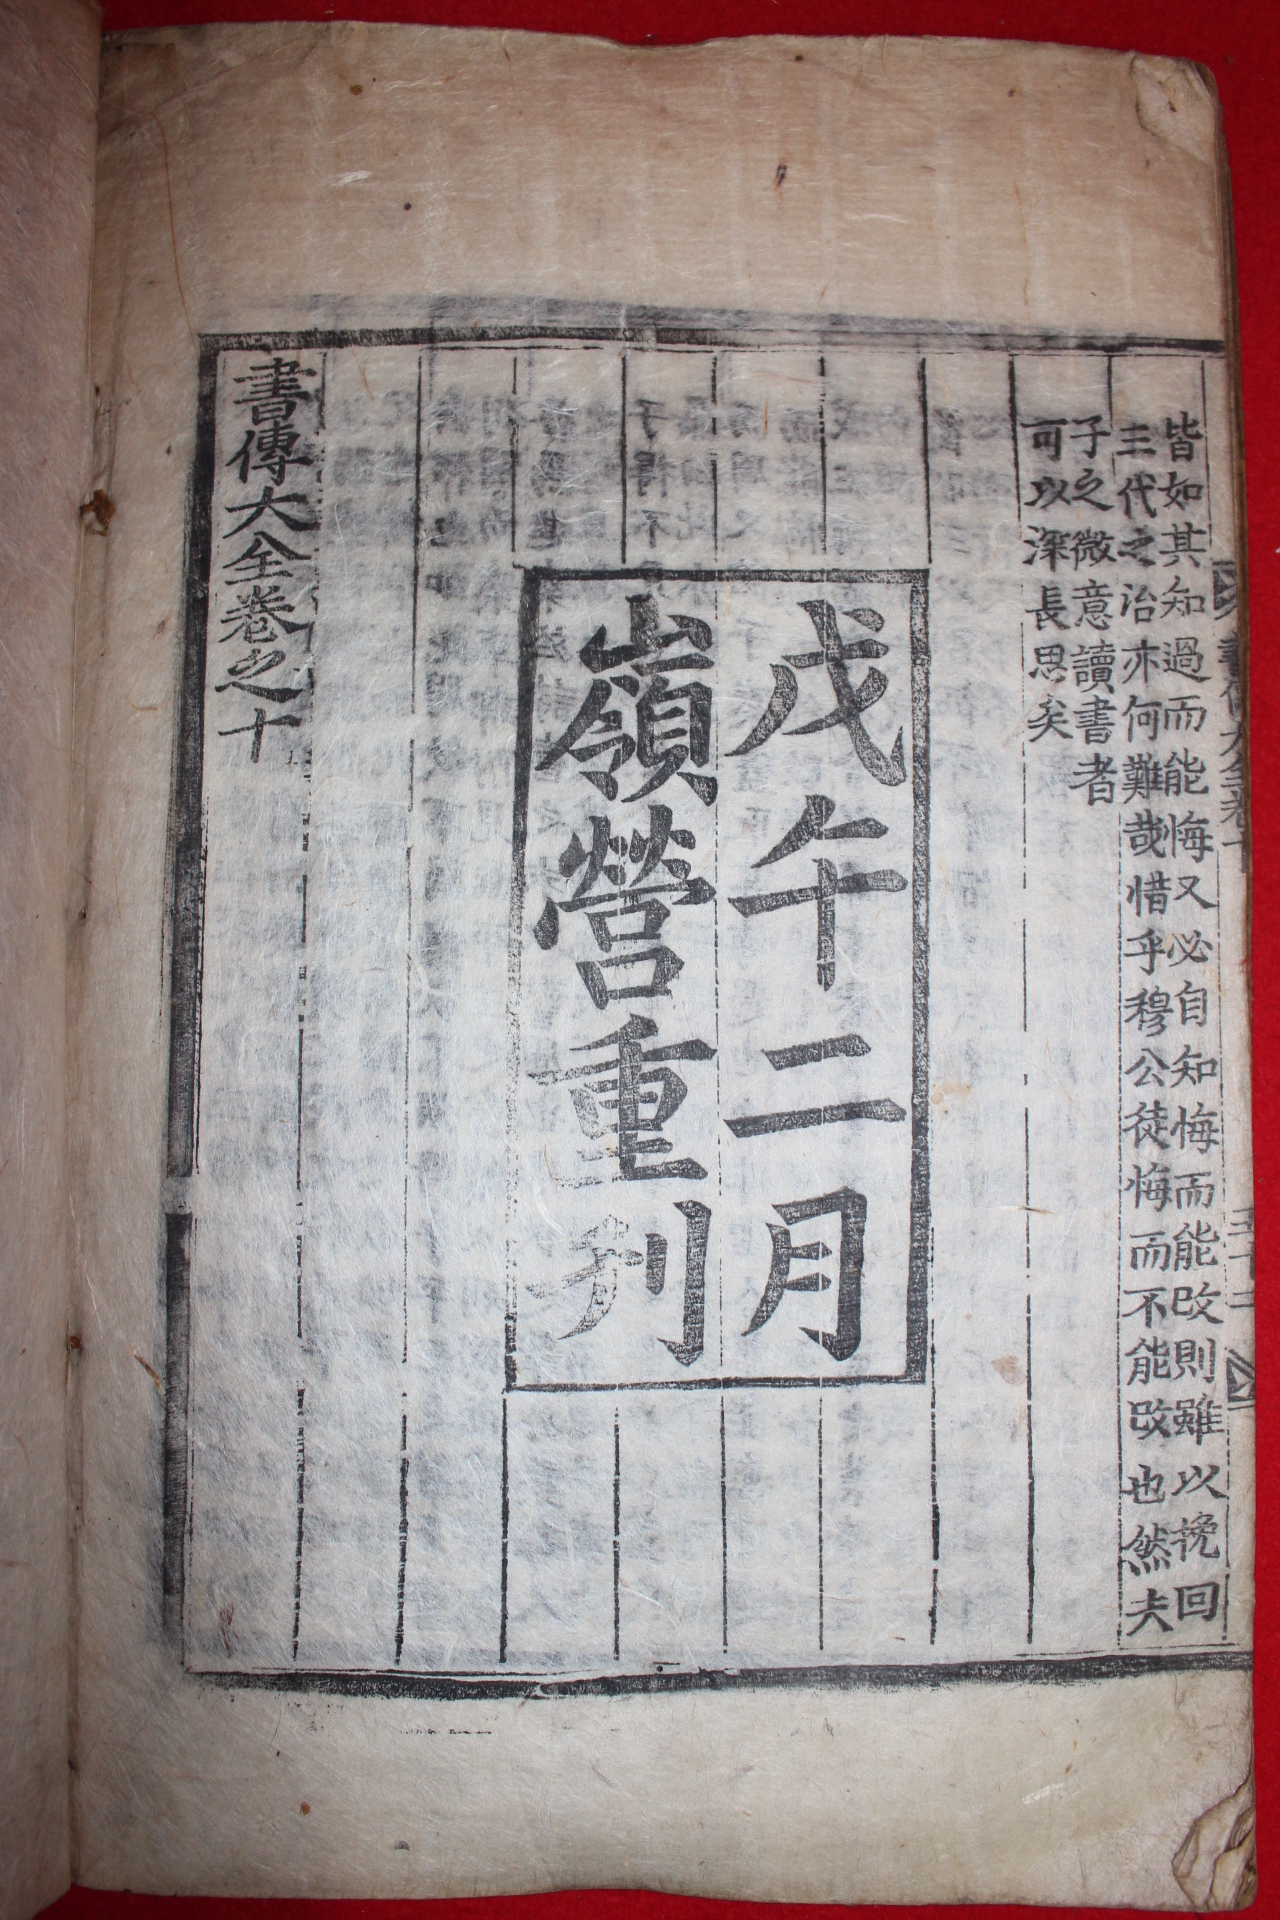 書傳大全卷十
三十二
皆如其知過而能悔又必自知悔而能改則雖以挽回
三代之治亦何難哉惜乎穆公徒悔而不能改也然夫
子之微意讀書者
可以深長思矣
戊午二月
嶺營重刊
書傳大全卷之十